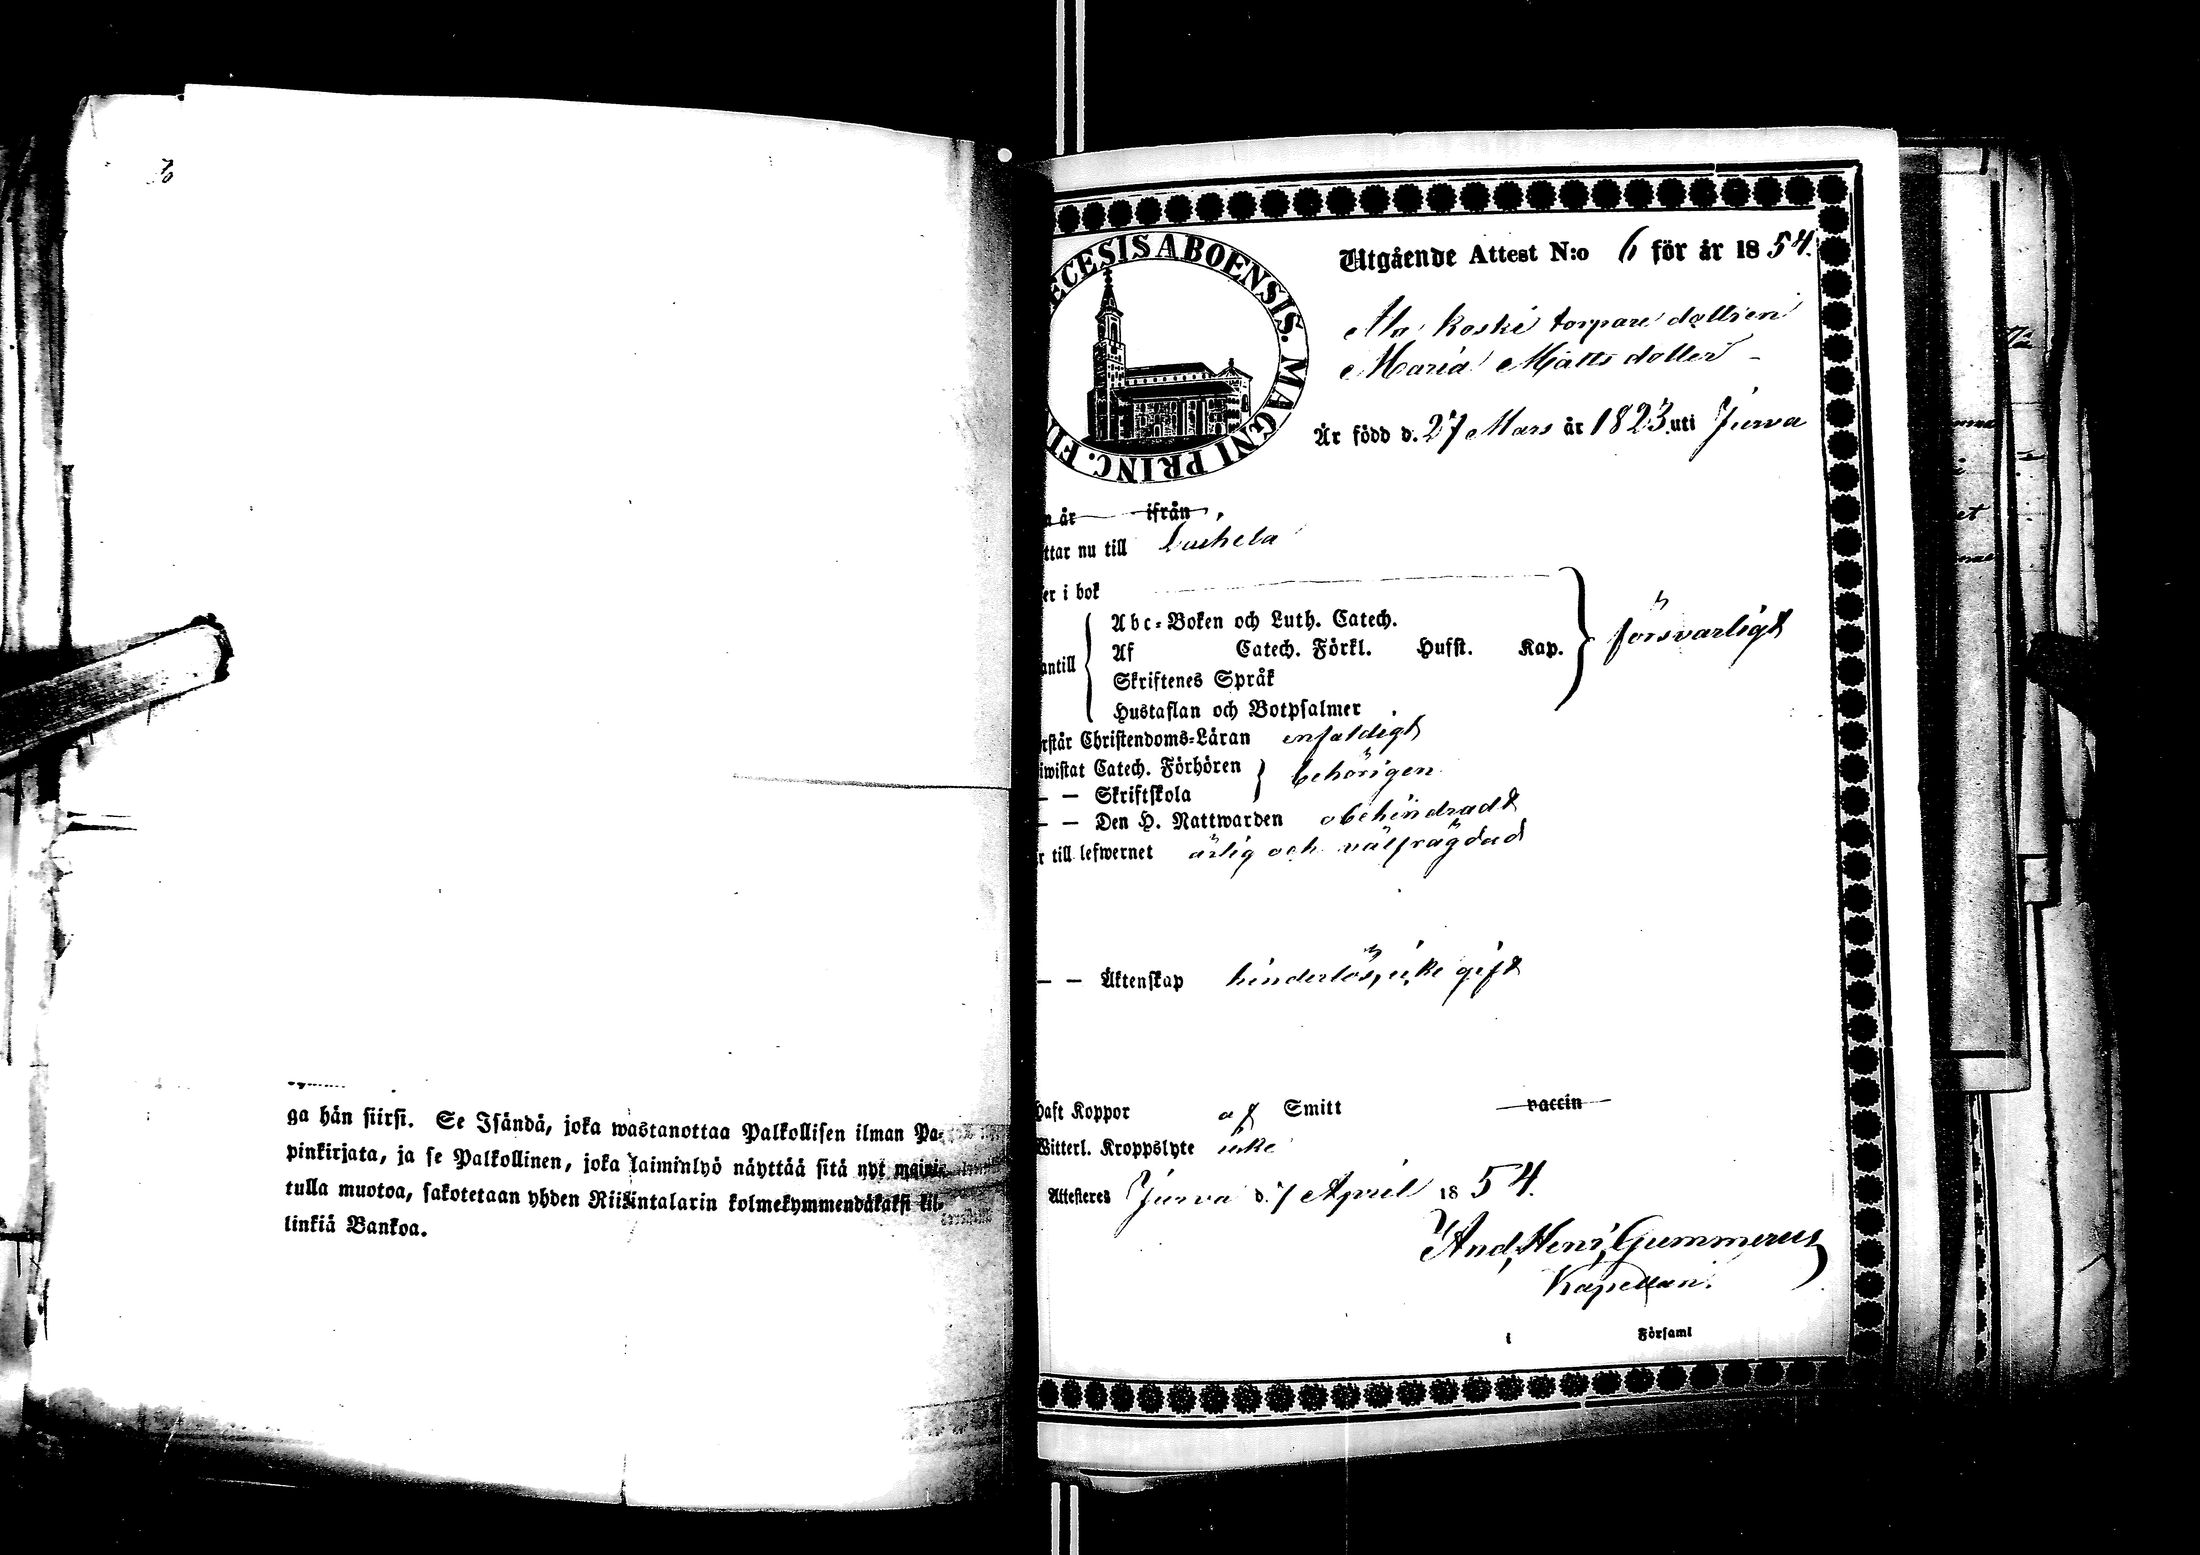 ga hän siirsi. Se Isändä, joka wastanottaa Palkollisen ilman Pa-
pinkirjata, ja se Palkollinen, joka laiminlyö näyttää sitä nyt maini-
tulla muotoa, sakotetaan yhden Riikintalarin kolmekymmendäkaksi kil-
linkiä Bankoa.
ECESIS ABOENSIS. MAGNI PRINC. FIN
Utgående Attest N:o 6 för år 1854.
Ala koski torpare dottren
Maria Matts dotter
Är född d. 27 Mars år 1823 uti Jurva
n år ifrån
ttar nu till Laihela
er i bok
antill
Abc-Boken och Luth. Catech.
Af Catech. Förkl. Hufst. Kap.
Skriftenes Språk
Hustaflan och Botpsalmer
försvarligt
rstår Christendoms-Läran enfaldigt
iwistat Catech. Förhören
behörigen
— — Skriftskola
— — Den H. Nattwarden obehindradt
r till lefwernet ärlig och välfrägdad
— — Äktenskap hinderlös, icke gift
Haft Koppor af Smitt vaccin
Witterl. Kroppslyte icke
Attesteres Jurva d. 7 April 1854.
And. Henr. Gummerus
Kapellan.
i Församl